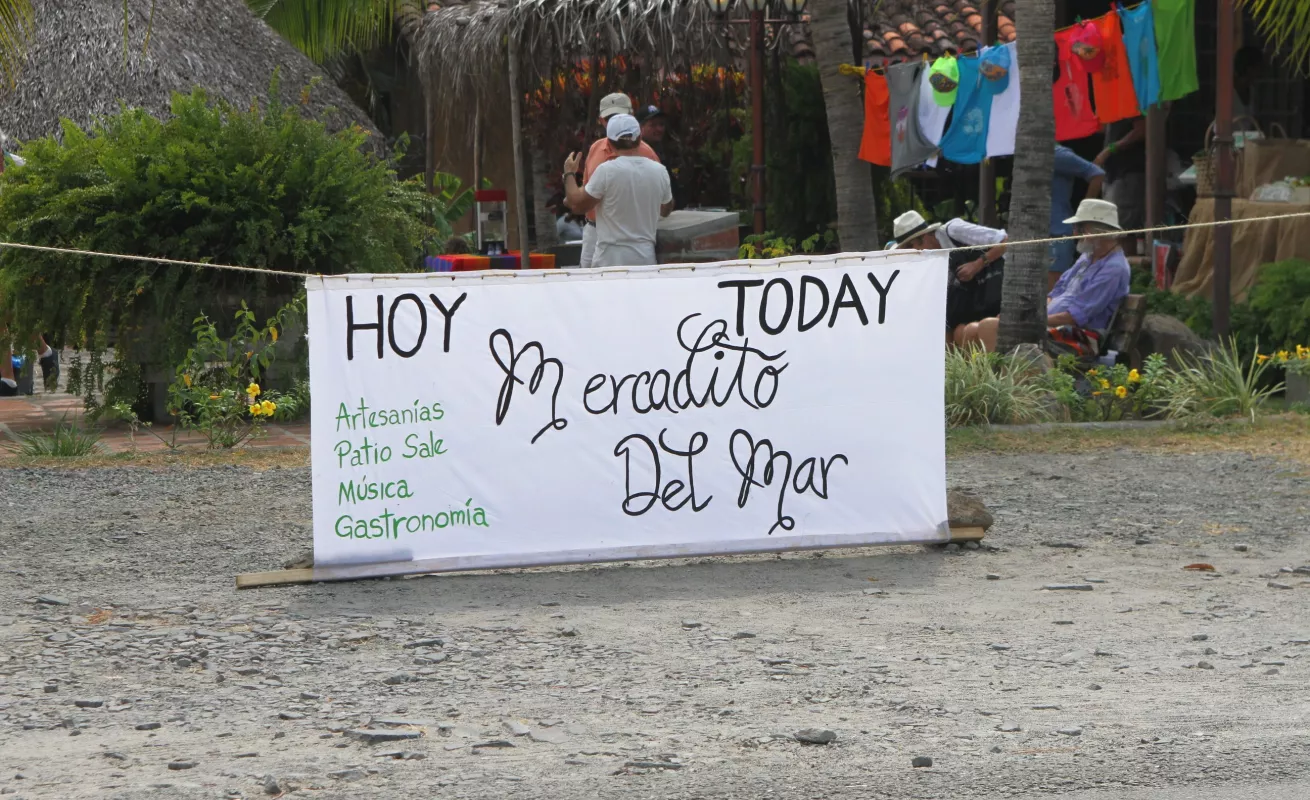 HOY
TODAY
Mercadito
Del Mar
Artesanías
Patio Sale
Música
Gastronomía